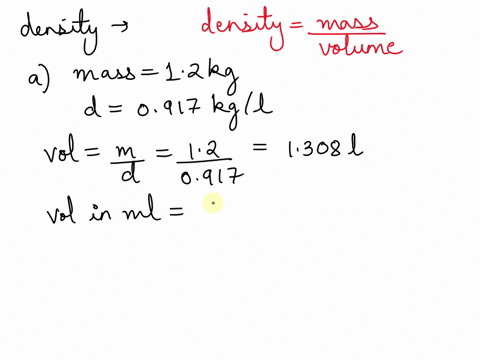 density → density = mass / volume
a) mass = 1.2 kg
d = 0.917 kg/l
vol = m/d = 1.2/0.917 = 1.308 l
vol in ml =